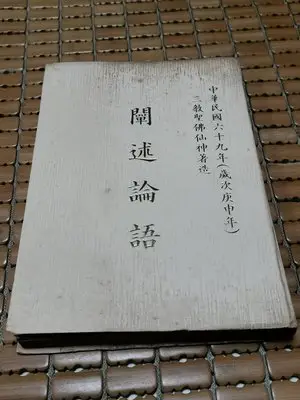 中華民國六十九年(歲次庚申年)
三教聖佛仙神著造
闡述論語